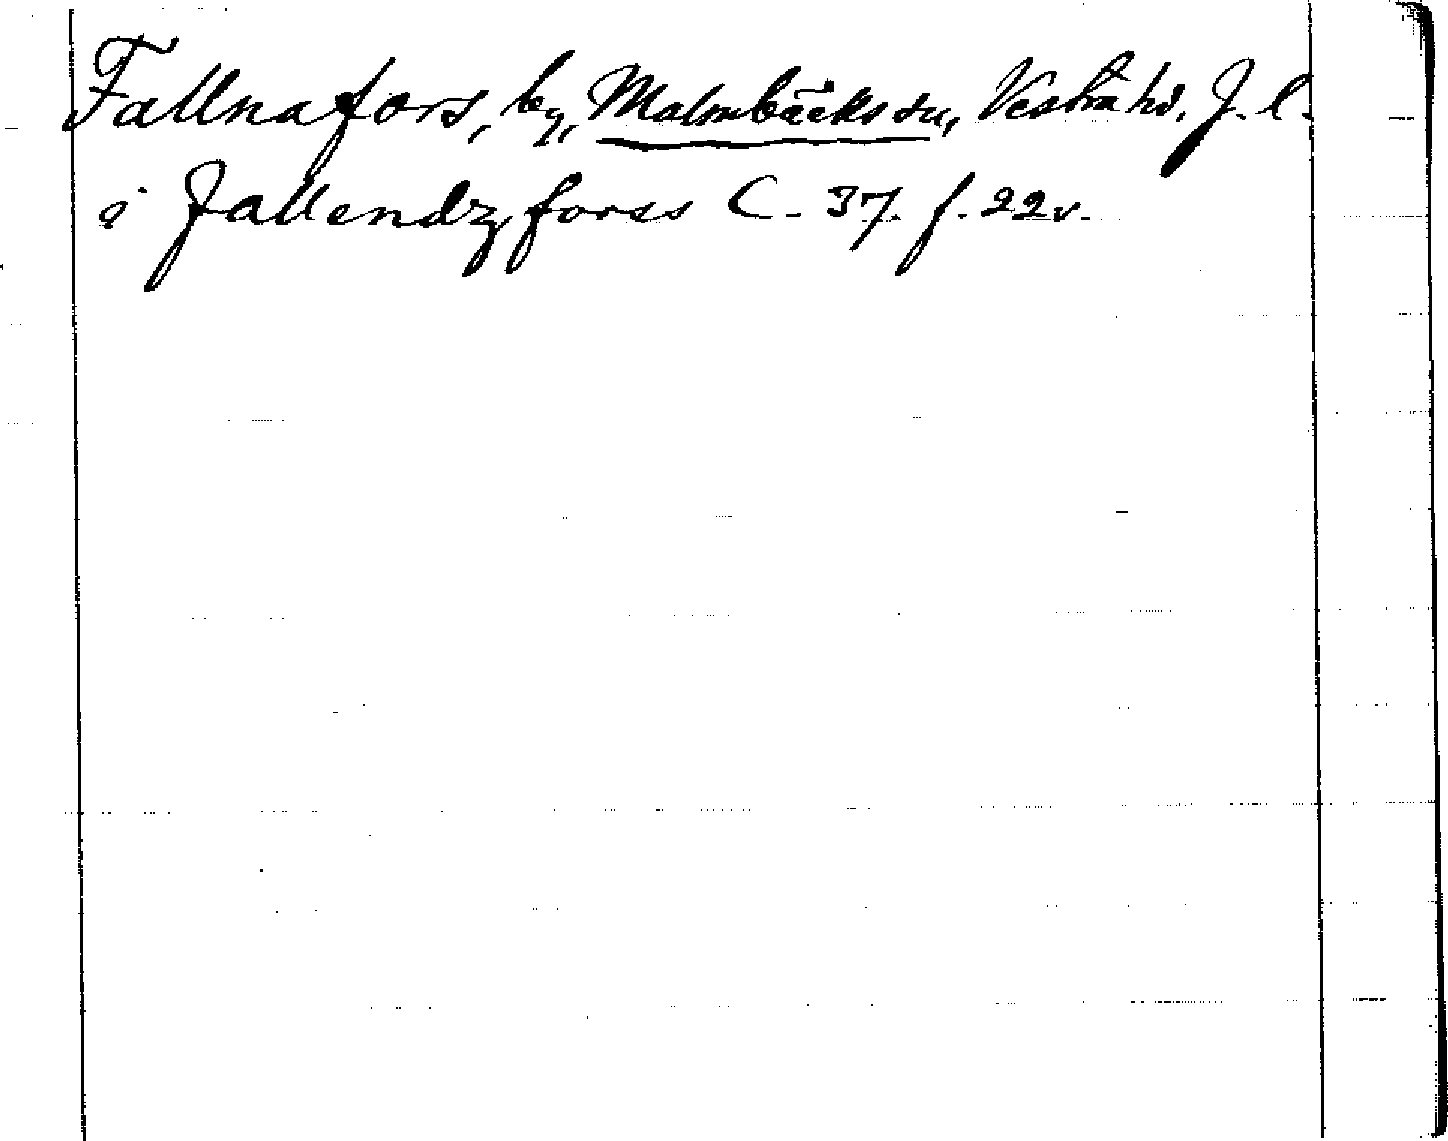 Fallnafors, by, Malmbäcks sn, Vestra hd. J. l.
i fallendzforss C. 37. f. 22v.